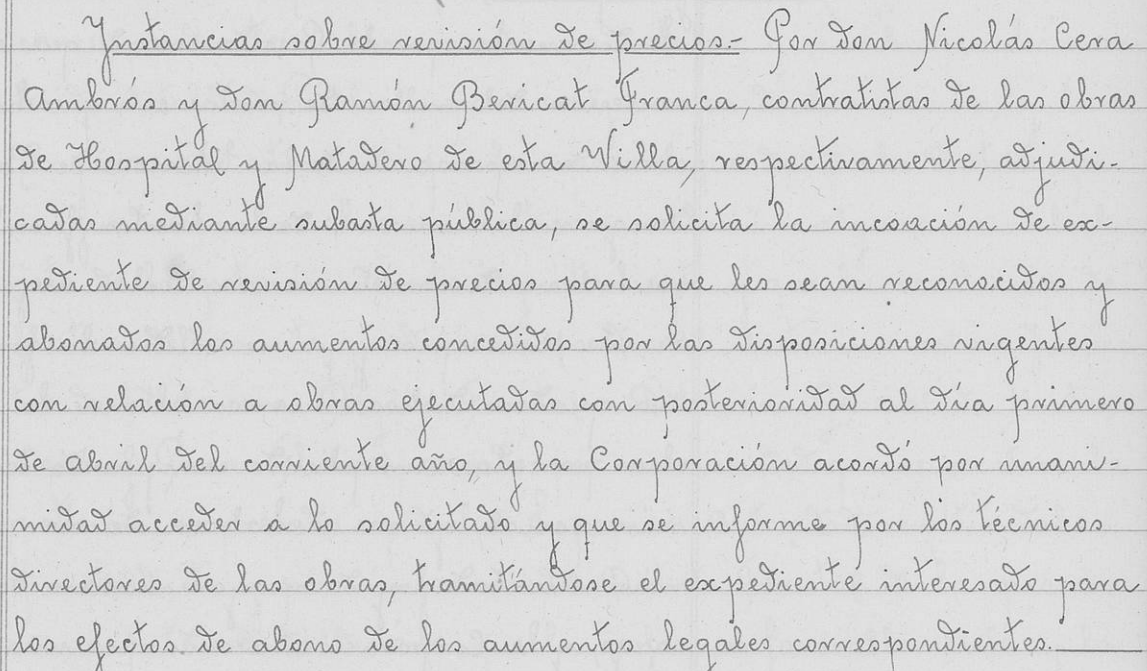 Instancias sobre revisión de precios.- Por don Nicolás Cera
Ambrós y don Ramón Bericat Franca, contratistas de las obras
de Hospital y Matadero de esta Villa, respectivamente, adjudi-
cadas mediante subasta pública, se solicita la incoación de ex-
pediente de revisión de precios para que les sean reconocidos y
abonados los aumentos concedidos por las disposiciones vigentes
con relación a obras ejecutadas con posterioridad al día primero
de abril del corriente año, y la Corporación acordó por unani-
midad acceder a lo solicitado y que se informe por los técnicos
directores de las obras, tramitándose el expediente interesado para
los efectos de abono de los aumentos legales correspondientes.